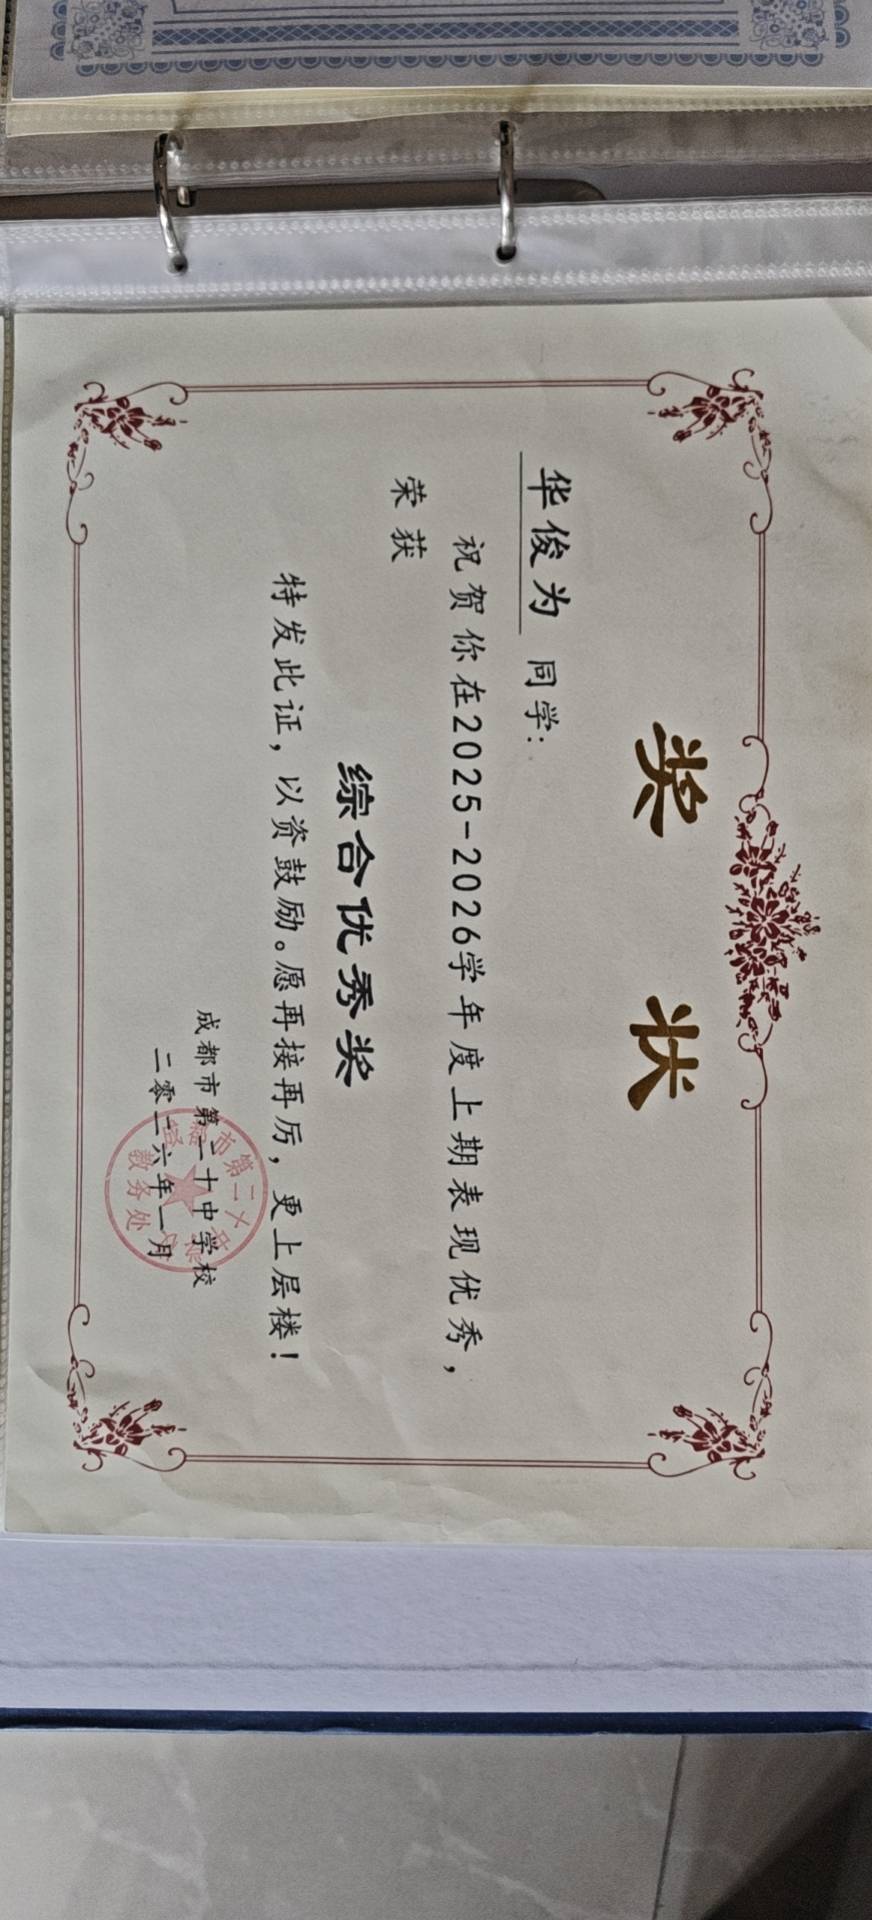 奖状
华俊为 同学：
祝贺你在2025-2026学年度上期表现优秀，
荣获
综合优秀奖
特发此证，以资鼓励。愿再接再厉，更上层楼！
成都市第二十中学校
二零二六年一月
教务处